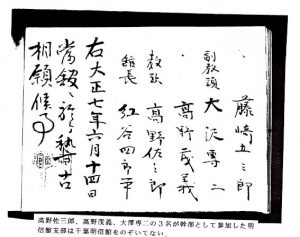 藤崎三郎
副教頭 大沢専二
高野茂義
教頭 高野佐三郎
館長 紅谷四郎平
右大正七年六月十四日
於稽古
相願候事
高野佐三郎、高野茂義、大澤専二の3名が幹部として参加した明
信館支部は千葉明信館をのぞいてない。